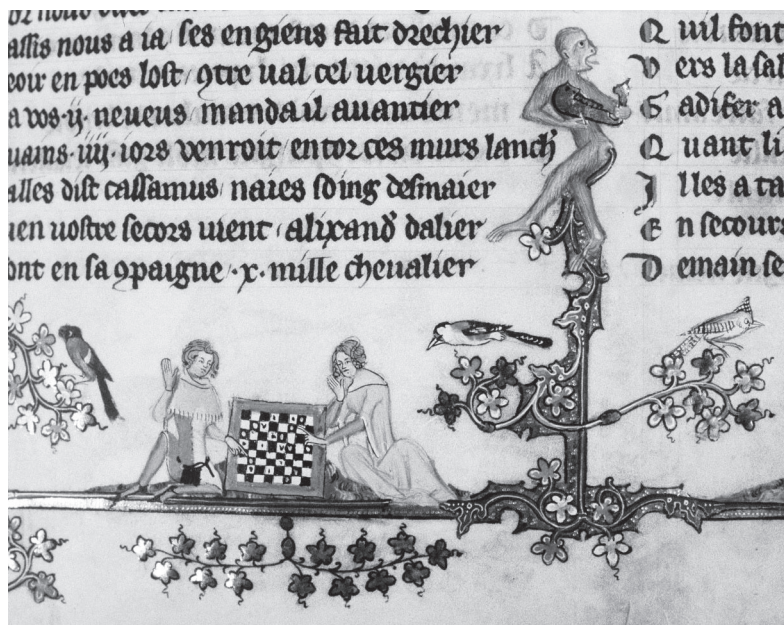 assis nous a ia ses engiens fait drechier
eoir en poes lost 9tre ual cel uergier
a vos ·ij· neueus manda il auantier
uains ·iiij· iors venroit entor ces murs lanch'
alles dist cassamus naies soing desmaier
ien uostre secors uient alixand' dalier
ont en sa 9paigne ·x· mille cheualier
Q uil font
V ers la sal
G adifer a
Q uant li
I lles a ta
E n secours
D emain se